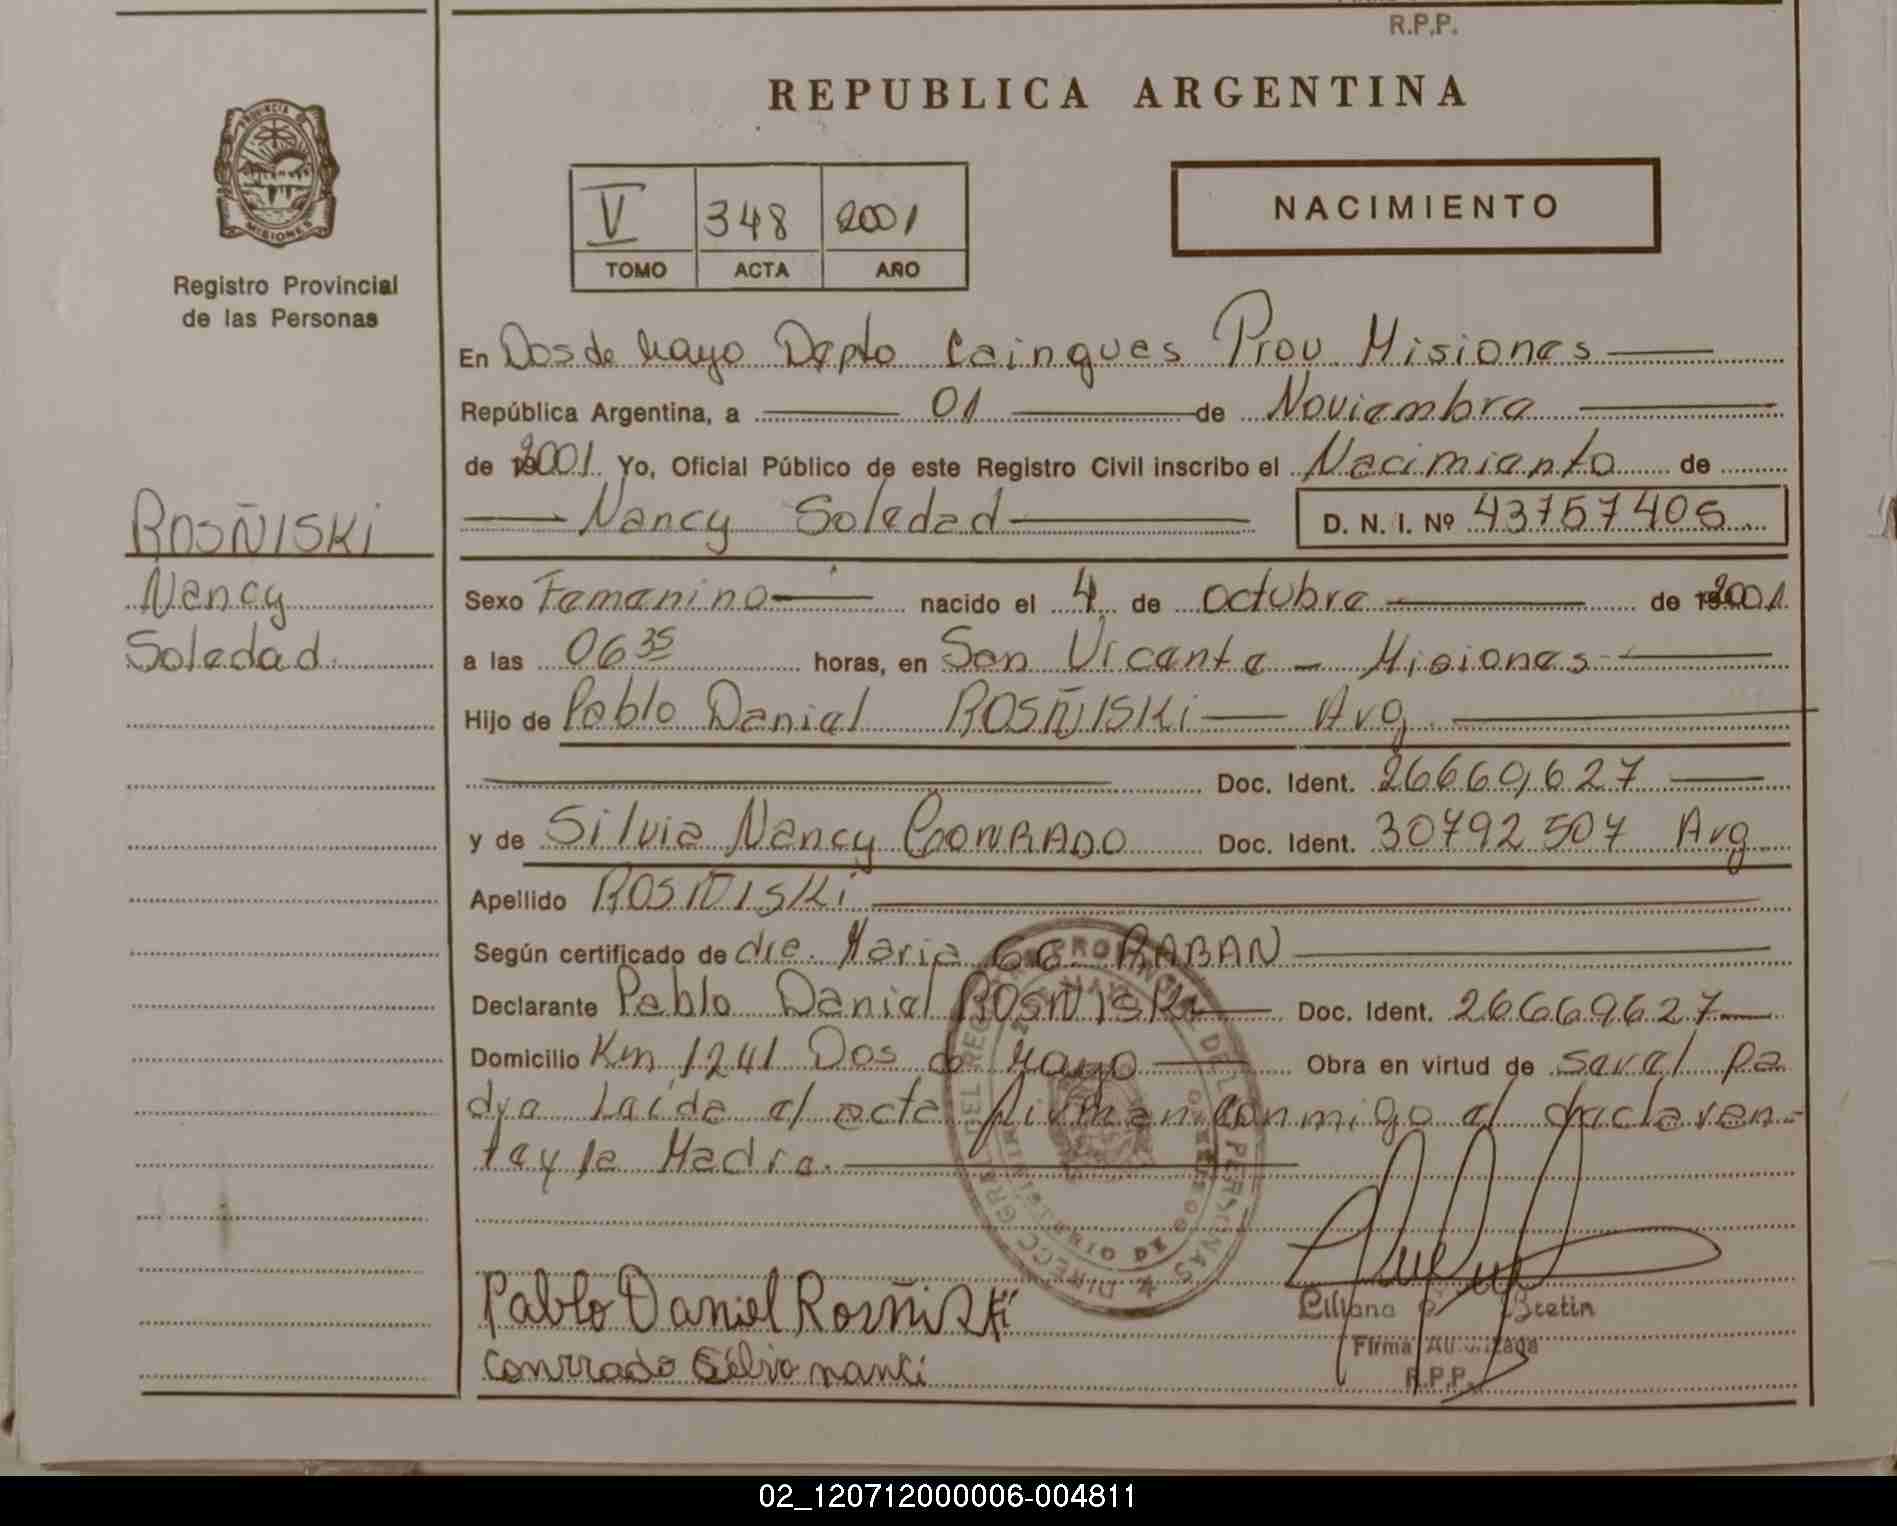 R.P.P.
REPUBLICA ARGENTINA
PROVINCIA DE
MISIONES
Registro Provincial
de las Personas
V 348 2001
TOMO ACTA AÑO
NACIMIENTO
En Dos de Mayo Depto Cainguas Prov Misiones
República Argentina, a 01 de Noviembre
de 2001 Yo, Oficial Público de este Registro Civil inscribo el Nacimiento de
Nancy Soledad D. N. I. Nº 43757406
ROSÑISKi
Nancy
Soledad
Sexo Femenino nacido el 4 de Octubre de 2001
a las 06 35 horas, en San Vicente - Misiones
Hijo de Pablo Daniel ROSÑISKi Arg
Doc. Ident. 26669627
y de Silvia Nancy CONRADO Doc. Ident. 30792507 Arg
Apellido ROSÑISKi
Según certificado de dra. Maria RABAN
Declarante Pablo Daniel ROSÑISKi Doc. Ident. 26669627
Domicilio Km 1241 Dos de Mayo Obra en virtud de ser el pa
dre Leída el acta firman conmigo el declaran-
te y la Madre.
Pablo Daniel Rosñiski
Conrrado Silvia nanci
Liliana Bretin
Firma Autorizada
R.P.P.
02_120712000006-004811